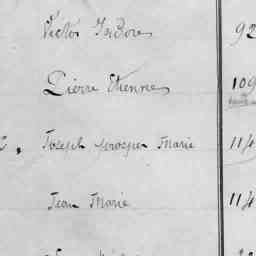 Victor Isidore 92
Pierre Etienne 109
2, Joseph prosper Marie 114
Jean Marie 114